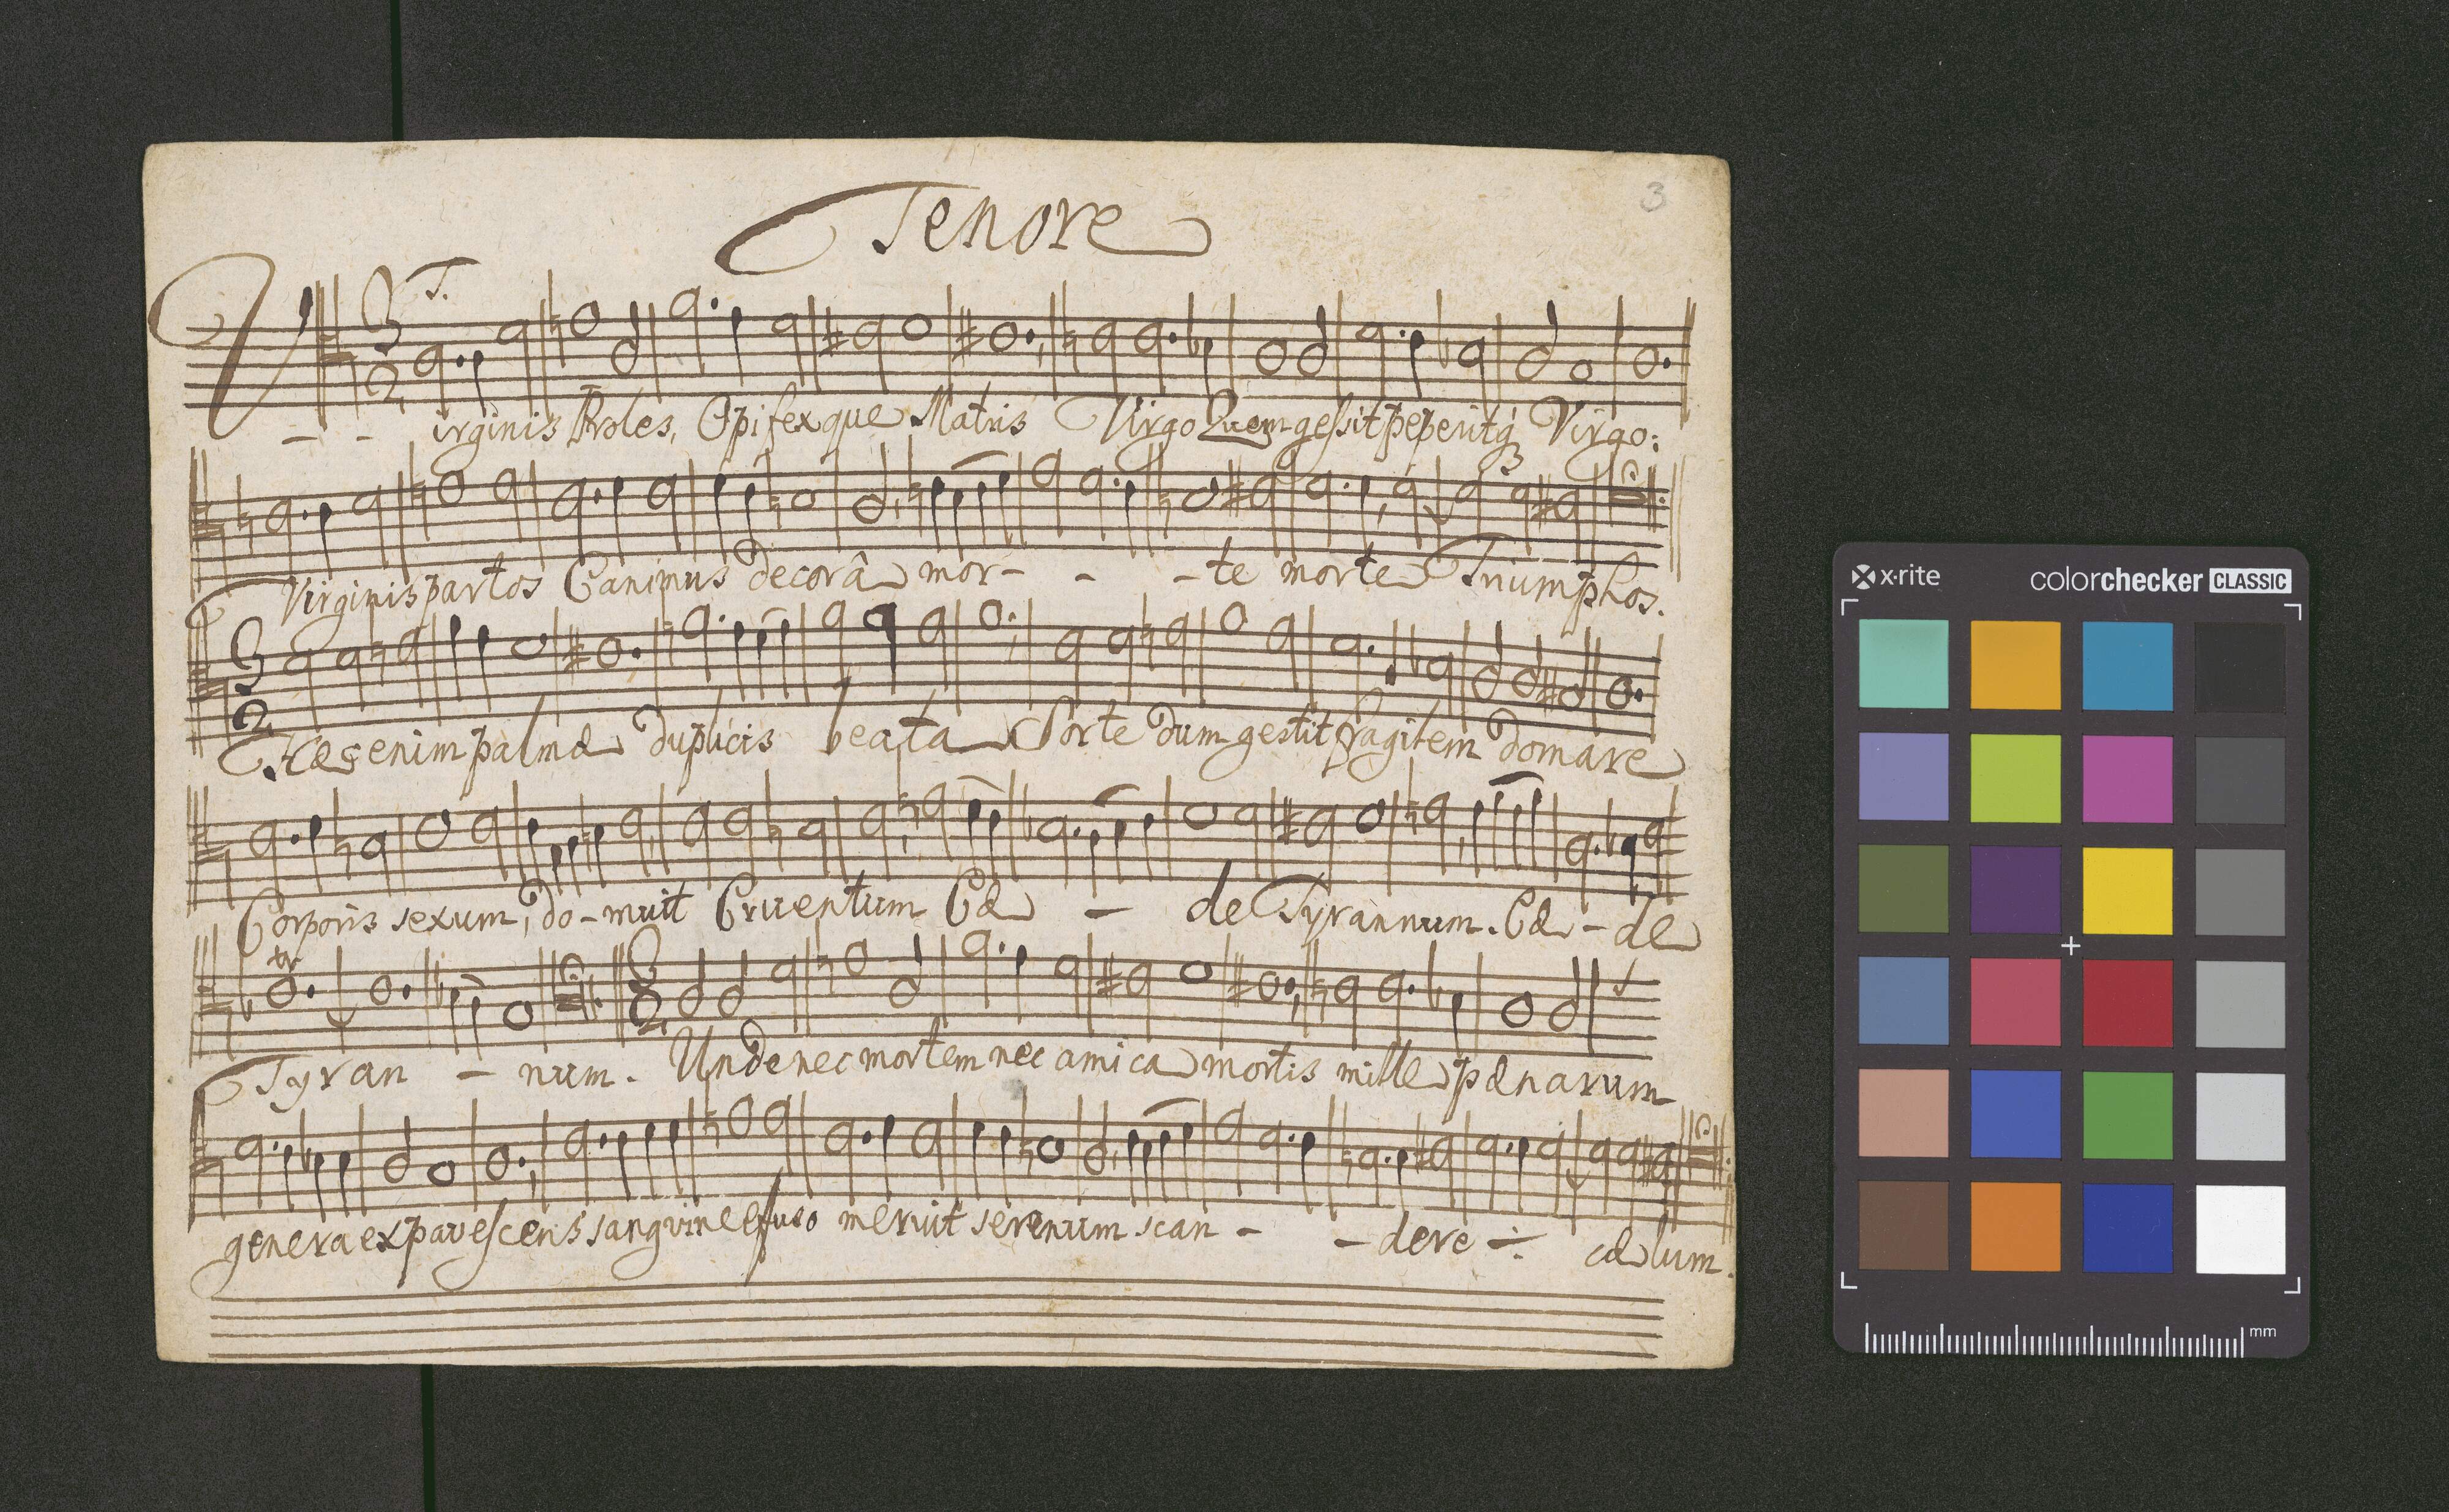 3
Tenore
T.
3
2
Virginis Proles, Opifexque Matris Virgo Quem gessit peperitq Virgo:
3
Virginis partos Canimus decorâ mor- - -te morte Triumphos.
3
2
Hæc enim palmæ duplicis beata Sorte dum gestit fragilem domare
Corporis sexum, do-muit Cruentum Cæ - de Tyrannum. Cæ - de
tr
3
2
Tyran - num. Unde nec mortem nec amica mortis mille pænarum
genera expavescens sanguine effuso meruit serenum scan - - dere ÷ cælum.
x-rite
colorchecker CLASSIC
mm